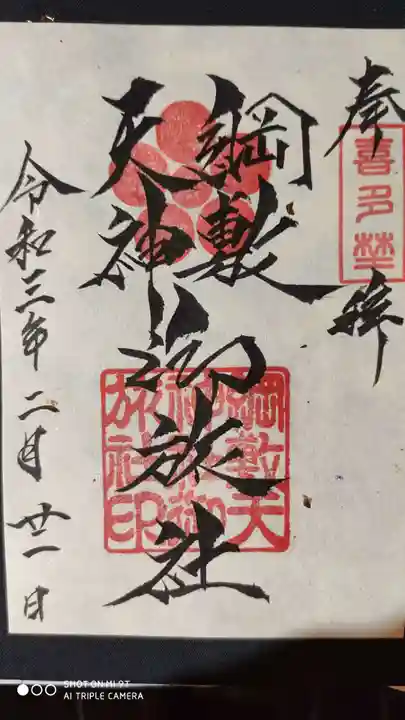 奉拝
喜多埜
綱敷
天神
御旅社
綱敷天
神御
旅社印
令和三年二月廿一日
SHOT ON MI 9T
AI TRIPLE CAMERA